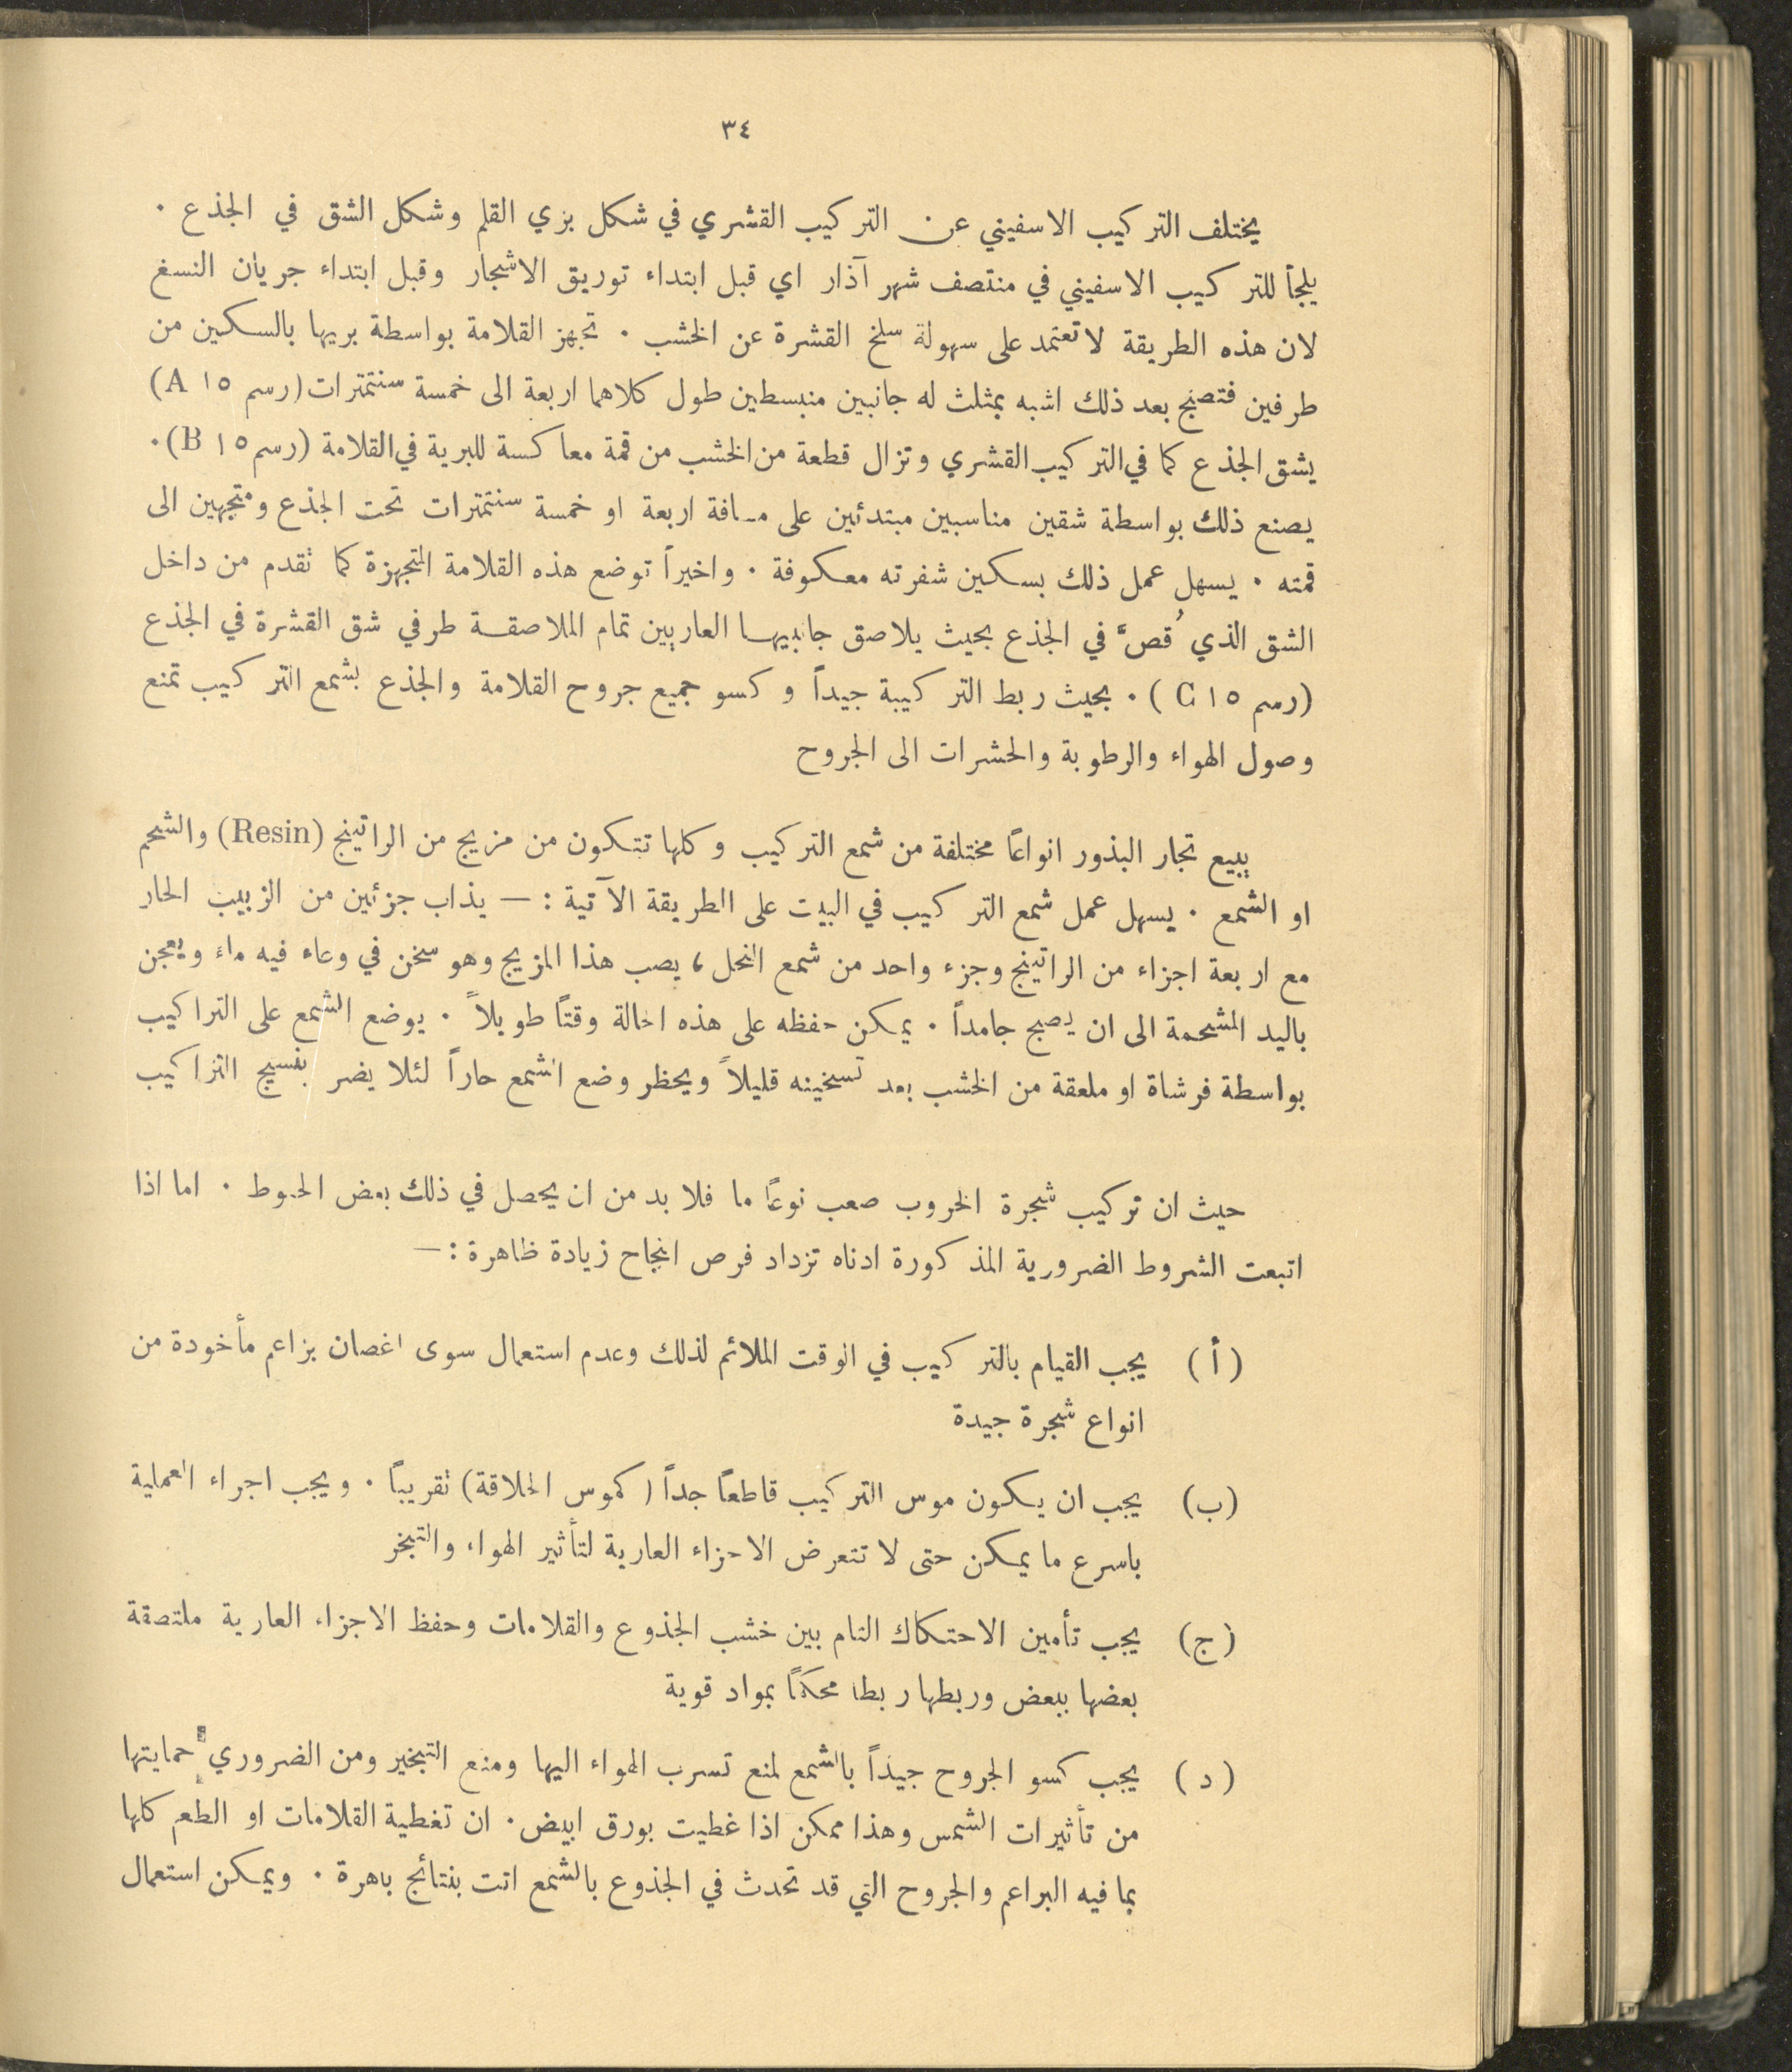 ٣٤
يختلف التركيب الاسفيني عن التركيب القشري في شكل بزي القلم وشكل الشق في الجذع ·
يلجأ للتركيب الاسفيني في منتصف شهر آذار اي قبل ابتداء توريق الاشجار وقبل ابتداء جريان النسغ
لان هذه الطريقة لا تعتمد على سهولة سلخ القشرة عن الخشب · تجهز القلامة بواسطة بريها بالسكين من
طرفين فتصبح بعد ذلك اشبه بمثلث له جانبين منبسطين طول كلاهما اربعة الى خمسة سنتمترات (رسم ١٥ A)
يشق الجذع كما في التركيب القشري وتزال قطعة من الخشب من قمة معاكسة للبرية في القلامة (رسم ١٥ B)·
يصنع ذلك بواسطة شقين مناسبين مبتدئين على مسافة اربعة او خمسة سنتمترات تحت الجذع ومتجهين الى
قمته · يسهل عمل ذلك بسكين شفرته معكوفة · واخيراً توضع هذه القلامة المتجهزة كما تقدم من داخل
الشق الذي قُصَّ في الجذع بحيث يلاصق جانبيها العاريين تمام الملاصقة طرفي شق القشرة في الجذع
(رسم ١٥ C) · بحيث ربط التركيبة جيداً وكسو جميع جروح القلامة والجذع بشمع التركيب تمنع
وصول الهواء والرطوبة والحشرات الى الجروح
يبيع تجار البذور انواعاً مختلفة من شمع التركيب وكلها تتكون من مزيج من الراتينج (Resin) والشحم
او الشمع · يسهل عمل شمع التركيب في البيت على الطريقة الآتية :— يذاب جزئين من الزبيب الحار
مع اربعة اجزاء من الراتينج وجزء واحد من شمع النحل ، يصب هذا المزيج وهو سخن في وعاء فيه ماء ويعجن
باليد المشحمة الى ان يصبح جامداً · يمكن حفظه على هذه الحالة وقتاً طويلاً · يوضع الشمع على التراكيب
بواسطة فرشاة او ملعقة من الخشب بعد تسخينه قليلاً ويحظر وضع الشمع حاراً لئلا يضر بنسيج التراكيب
حيث ان تركيب شجرة الخروب صعب نوعاً ما فلا بد من ان يحصل في ذلك بعض الحبوط · اما اذا
اتبعت الشروط الضرورية المذكورة ادناه تزداد فرص انجاح زيادة ظاهرة :—
(أ) يجب القيام بالتركيب في الوقت الملائم لذلك وعدم استعمال سوى اغصان بزاعم مأخودة من
انواع شجرة جيدة
(ب) يجب ان يكون موس التركيب قاطعاً جداً (كموس الحلاقة) تقريباً · ويجب اجراء العملية
باسرع ما يمكن حتى لا تتعرض الاجزاء العارية لتأثير الهواء والتبخر
(ج) يجب تأمين الاحتكاك التام بين خشب الجذوع والقلامات وحفظ الاجزاء العارية ملتصقة
بعضها ببعض وربطها ربطا محكماً بمواد قوية
(د) يجب كسو الجروح جيداً بالشمع لمنع تسرب الهواء اليها ومنع التبخير ومن الضروري حمايتها
من تأثيرات الشمس وهذا ممكن اذا غطيت بورق ابيض · ان تغطية القلامات او الطعم كلها
بما فيه البراعم والجروح التي قد تحدث في الجذوع بالشمع اتت بنتائج باهرة · ويمكن استعمال